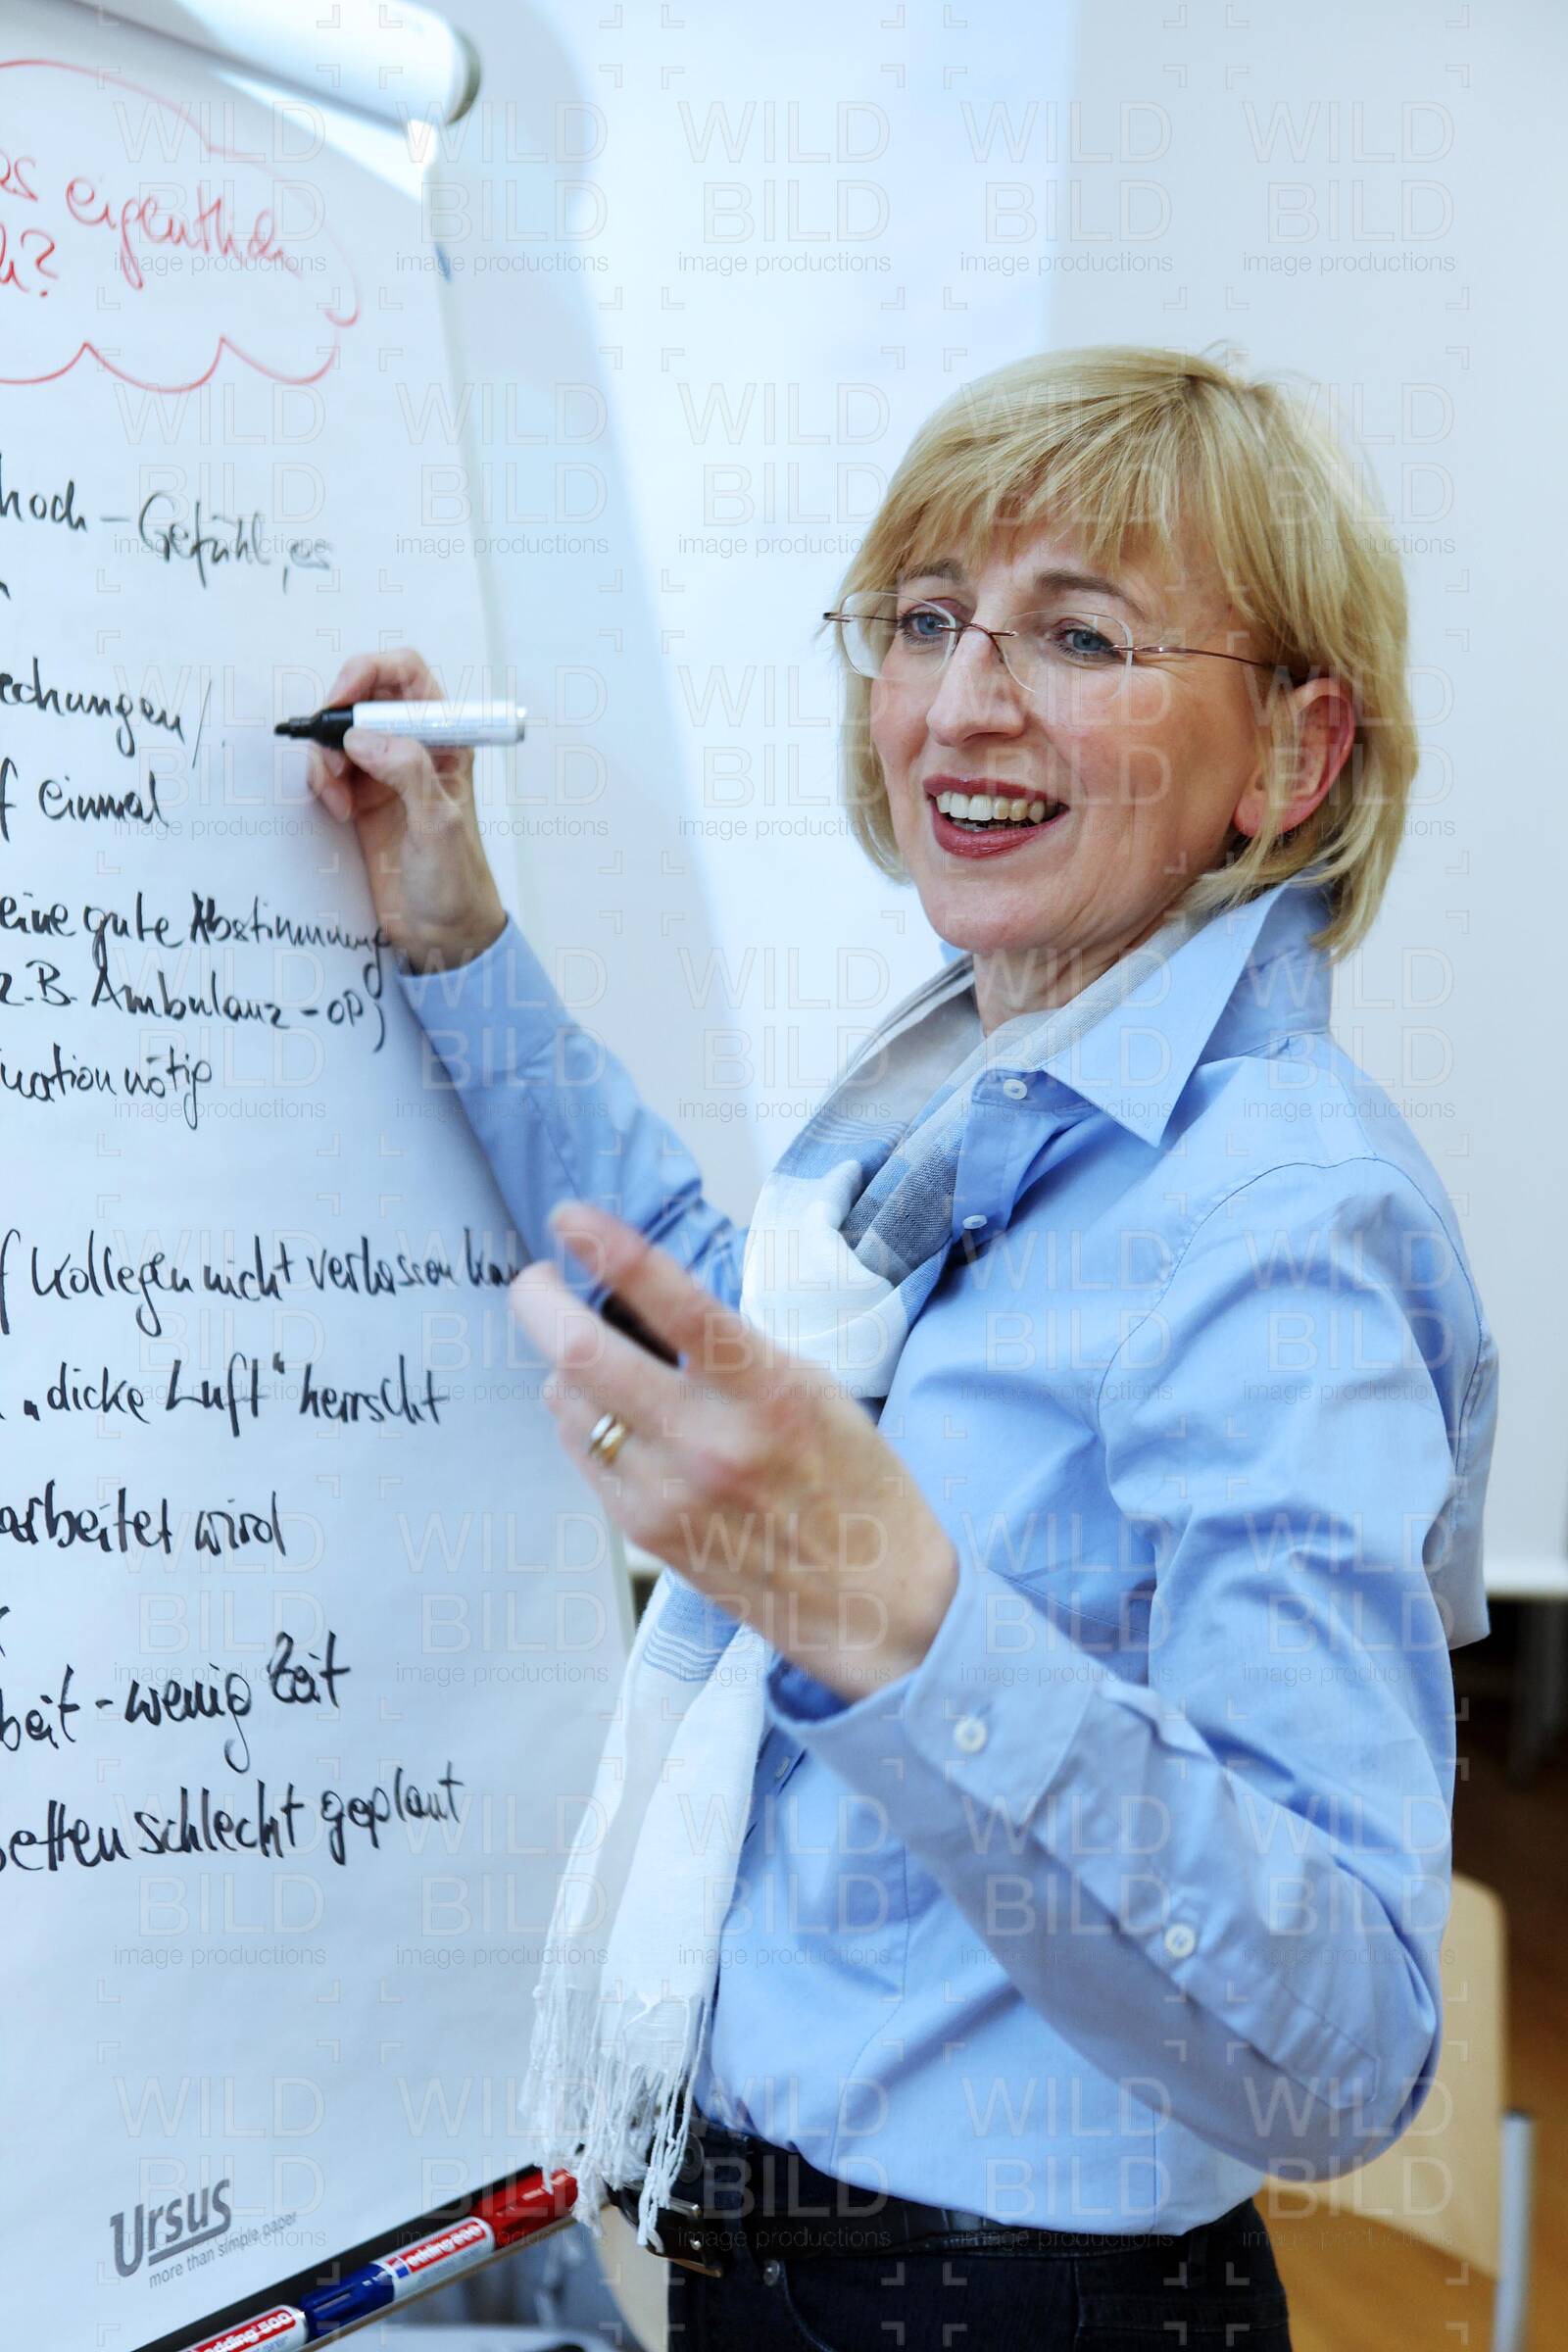 es eigentlich
h?
hoch - Gefühl, es
echungen /
f einmal
eine gute Abstimmung
z.B. Ambulanz - OP)
uation nötig
f Kollegen nicht verlassen kan
„dicke Luft" herrscht
arbeitet wird
beit - wenig Zeit
betten schlecht geplant
Ursus
more than simple paper
edding 500
edding 500
WILD
BILD
image productions